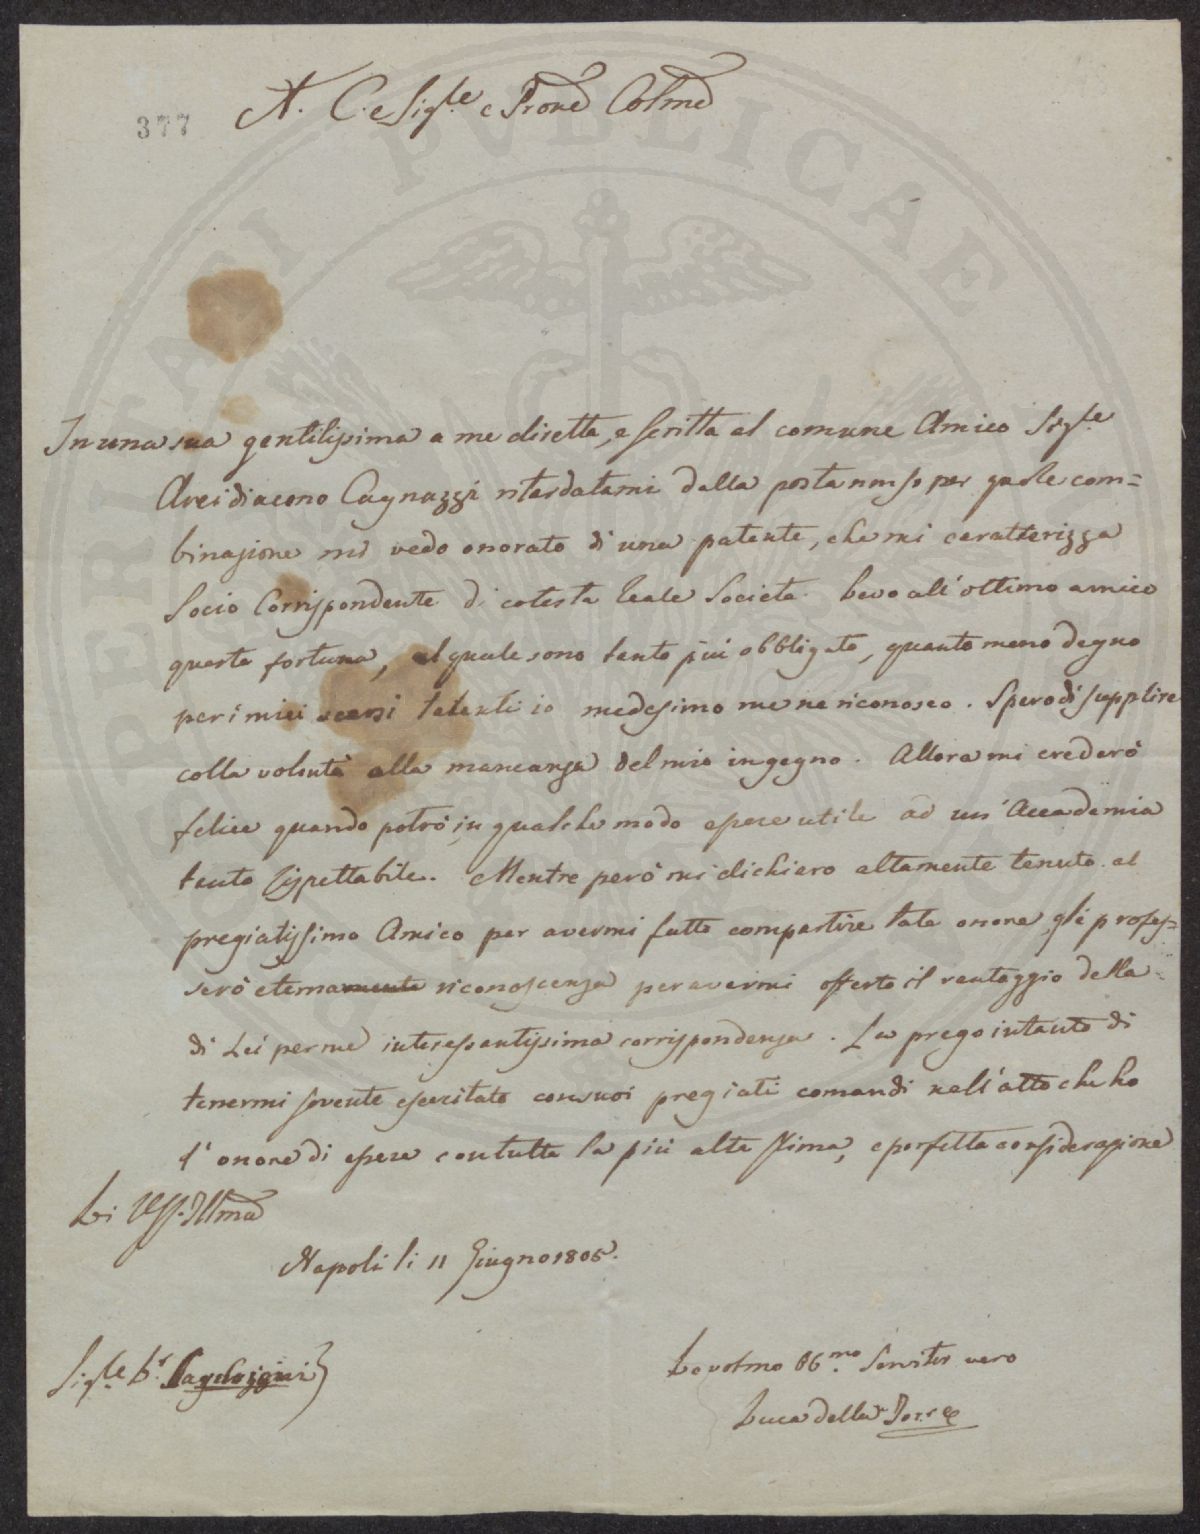 377
A. C. e Sig.le e Prone Colmo
In una sua gentilissima a me diretta, e scritta al comune Amico Sig.le
Arcidiacono Cagnazzi ritardatami dalla posta non so per quale com=
binazione mi vedo onorato di una patente, che mi caratterizza
Socio Corrispondente di cotesta Reale Società. Devo all'ottimo amico
questa fortuna, al quale sono tanto più obbligato, quanto meno degno
per i miei scarsi talenti io medesimo me ne riconosco. Spero di supplire
colla volontà alla mancanza del mio ingegno. Allora mi crederò
felice quando potrò in qualche modo essere utile ad un'Accademia
tanto rispettabile. Mentre però mi dichiaro altamente tenuto al
pregiatissimo Amico per avermi fatto compartire tale onore, gli profes=
serò eterna riconoscenza per avermi offerto il vantaggio della
di Lei per me interessantissima corrispondenza. La prego intanto di
tenermi sovente esercitato con suoi pregiati comandi nell'atto che ho
l'onore di essere con tutta la più alta stima, e perfetta considerazione
Di Illma
Napoli li 11 Giugno 1805.
Sig.le
Devotmo Obmo Servitor vero
Luca della Torre
PVBLICAE